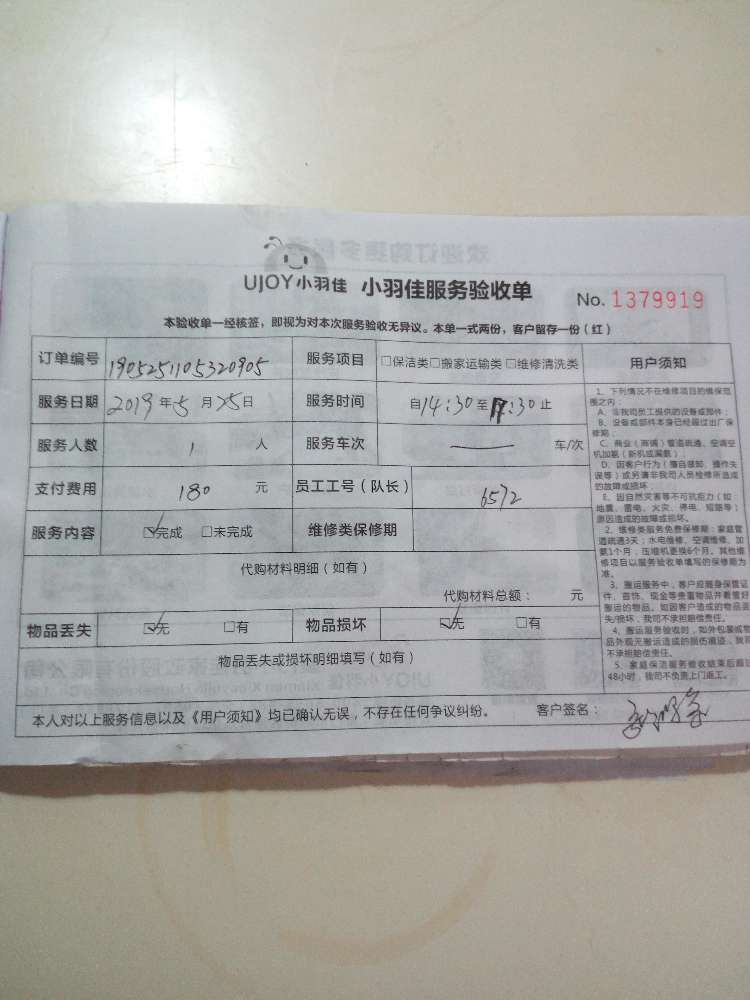 欢迎订购更多
UJOY小羽佳 小羽佳服务验收单 No. 1379919
本验收单一经核签，即视为对本次服务验收无异议。本单一式两份，客户留存一份（红）
订单编号 1905251105320905 服务项目 □保洁类□搬家运输类□维修清洗类 用户须知
服务日期 2019年5月25日 服务时间 自14:30至17:30止
服务人数 1 人 服务车次 — 车/次
支付费用 180 元 员工工号（队长） 6572
服务内容 ☑完成 □未完成 维修类保修期
代购材料明细（如有）
代购材料总额： 元
物品丢失 ☑无 □有 物品损坏 ☑无 □有
物品丢失或损坏明细填写（如有）
本人对以上服务信息以及《用户须知》均已确认无误，不存在任何争议纠纷。 客户签名：
1、下列情况不在维修项目的维保范
围之内：
A、非我司员工提供的设备或部件；
B、设备或部件本身已经超过出厂保
修期；
C、商业（商铺）管道疏通、空调空
机加氨（新机或漏氨）；
D、因客户行为（擅自装卸、操作失
误等）或另请非我司人员检修所造成
的故障或损坏；
E、因自然灾害等不可抗拒力（如
地震、雷电、火灾、停电、短路等）
原因造成的故障或损坏。
2、维修类服务免费保修期：家庭管
道疏通3天；水电维修、空调维修、加
氨1个月，压缩机更换6个月。其他维
修项目以服务验收单填写的保修期为
准。
3、搬运服务中，客户应随身保管证
件、首饰、现金等贵重物品并看管好
搬运的物品。如因客户造成的物品丢
失/损坏，我司不承担赔偿责任。
4、搬运服务验收时，如外包装或物
品外观无搬运造成的损伤痕迹，我司
不承担赔偿责任。
5、家庭保洁服务验收结束后超过
48小时，我司不负责上门返工。